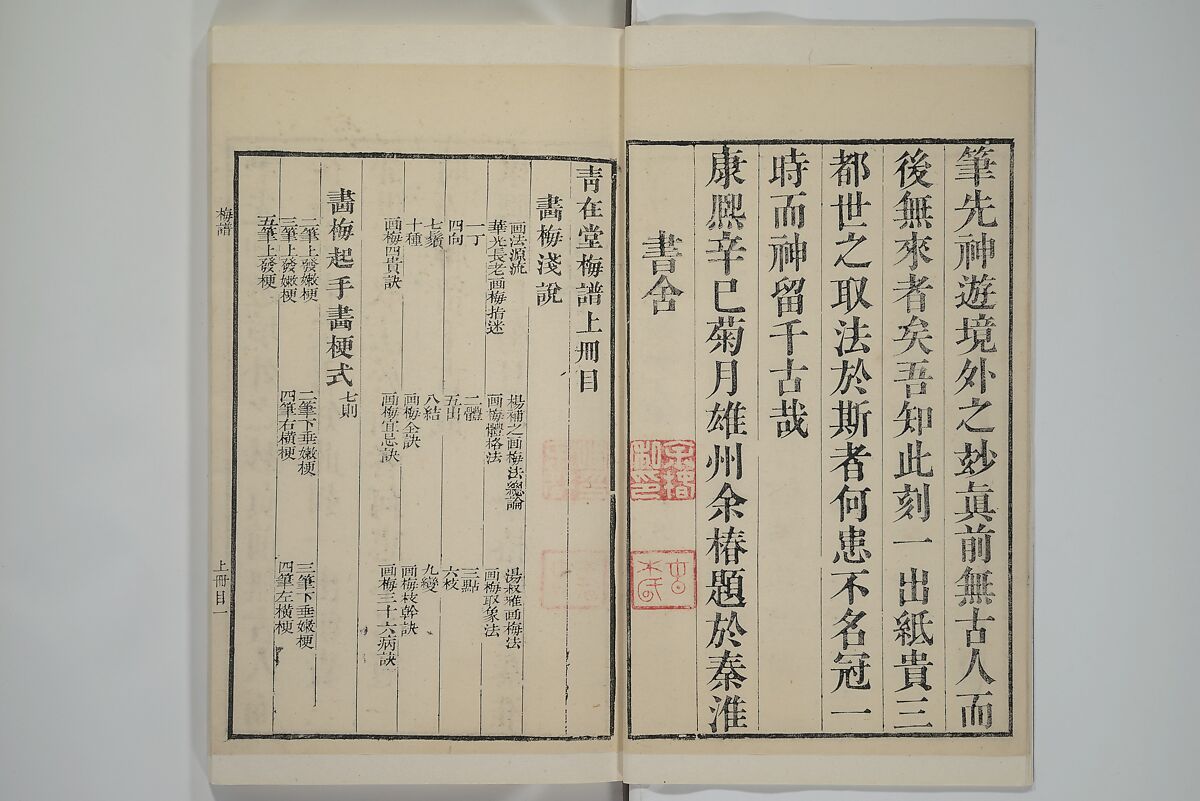 筆先神遊境外之玅眞前無古人而
後無來者矣吾知此刻一出紙貴三
都世之取法於斯者何患不名冠一
時而神留千古哉
康熈辛巳菊月雄州余椿題於秦淮
書舍
余椿
青在堂梅譜上冊目
畫梅淺說
画法源流 楊補之画梅法總論 湯叔雅画梅法
華光長老画梅指迷 画梅體格法 画梅取象法
一丁 二體 三點
四向 五出 六枝
七鬚 八結 九變
十種 画梅全訣 画梅枝幹訣
画梅四貴訣 画梅宜忌訣 画梅三十六病訣
畫梅起手畫梗式七則
二筆上發嫩梗 二筆下垂嫩梗 三筆下垂嫩梗
三筆上發嫩梗 四筆右橫梗 四筆左橫梗
五筆上發梗
梅譜 上冊目 一